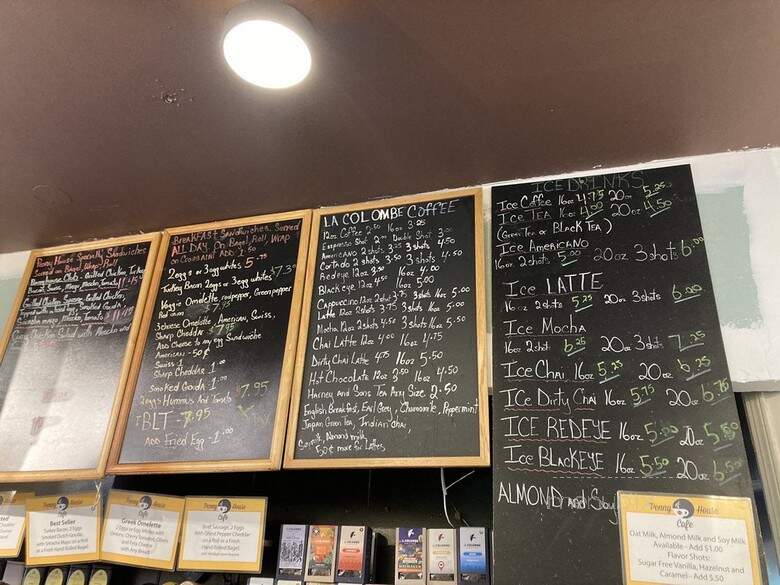 Penny House Specialty Sandwiches
Served on Bagel, Wrap, Roll
Grilled Chicken
Grilled Chicken,
BREAKFAST Sandwiches Served
ALL DAY on Bagel, Roll, WRAP
on Croissant ADD 1.50
2eggs or 3egg whites 5.
Turkey Bacon 2eggs or 3egg whites $7.
Veggie Omelette, red pepper, Green pepper
Red onion
3 cheese Omelette American, Swiss,
Sharp Cheddar $7.95
ADD Cheese to any egg Sandwiche
American - 50¢
Swiss 1
Sharp Cheddar 1.00
Smoked Gouda 1.00
2eggs Hummus And Tomato $7.95
BLT - 7.95
ADD Fried Egg - 1.00
LA COLOMBE COFFEE
12oz Coffee 2.50 16oz 3.25
Espresso Shot 2.00 Double Shot 3.00
AmericANO 2 shots 3.25 3 shots 4.50
Cortado 2 shots 3.50 3 shots 4.50
Redeye 12oz 3.50 16oz 4.00
Black eye 12oz 4.50 16oz 5.00
Cappuccino 12oz 2shot 3.75 3shots 16oz 5.00
Latte 12oz 2shots 3.75 3shots 16oz 5.00
Mocha 12oz 2shots 4.50 3shots 16oz 5.50
Chai Latte 12oz 4.00 16oz 4.75
Dirty Chai Latte 4.75 16oz 5.50
Hot Chocolate 12oz 2.50 16oz 4.50
Harney and Sons Tea Any Size 2.50
English Breakfast, Earl Grey, Chamomile, Peppermint
Japan Green Tea, Indian Chai,
Soy milk, Almond milk
50¢ more for Lattes
ICE DRINKS
Ice Coffee 16oz 4.75 20oz 5.25
Ice TEA 16oz 4.00 20oz 4.50
(Green Tea or BLACK TEA)
Ice AmericANO
16oz 2shots 5.00 20oz 3shots 6.00
Ice LATTE
16oz 2shots 5.25 20oz 3shots 6.00
Ice Mocha
16oz 2shot 6.25 20oz 3shot 7.25
Ice Chai 16oz 5.25 20oz 6.25
Ice Dirty Chai 16oz 5.75 20oz 6.75
ICE REDEYE 16oz 5.00 20oz 5.50
Ice BLACKEYE 16oz 5.50 20oz 6.
ALMOND and Soy
Penny House
Cafe
Best Seller
Turkey Bacon, 2 Eggs
Smoked Dutch Gouda,
with Sriracha Mayo on a Roll
or a Fresh Hand Rolled Bagel
Penny House
Cafe
Greek Omelette
2 Eggs or Egg Whites with
Onions, Cherry Tomatoes, Olives
and Feta Cheese
with Any Bread!
Penny House
Cafe
Beef Sausage, 2 Eggs
With Ghost Pepper Cheddar
on a Roll or a Fresh
Hand Rolled Bagel
Penny House
Cafe
Oat Milk, Almond Milk and Soy Milk
Available - Add $1.00
Flavor Shots:
Sugar Free Vanilla, Hazelnut and
Caramel - Add 3.50
LA COLOMBE